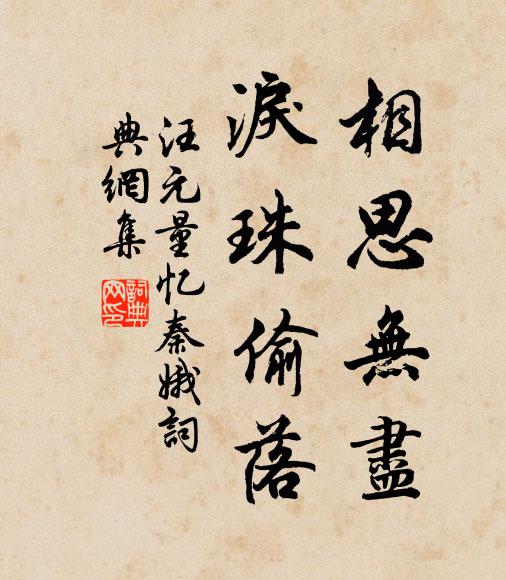 相思無盡
淚珠偷落
汪元量忆秦娥詞
典網集
詞典網印